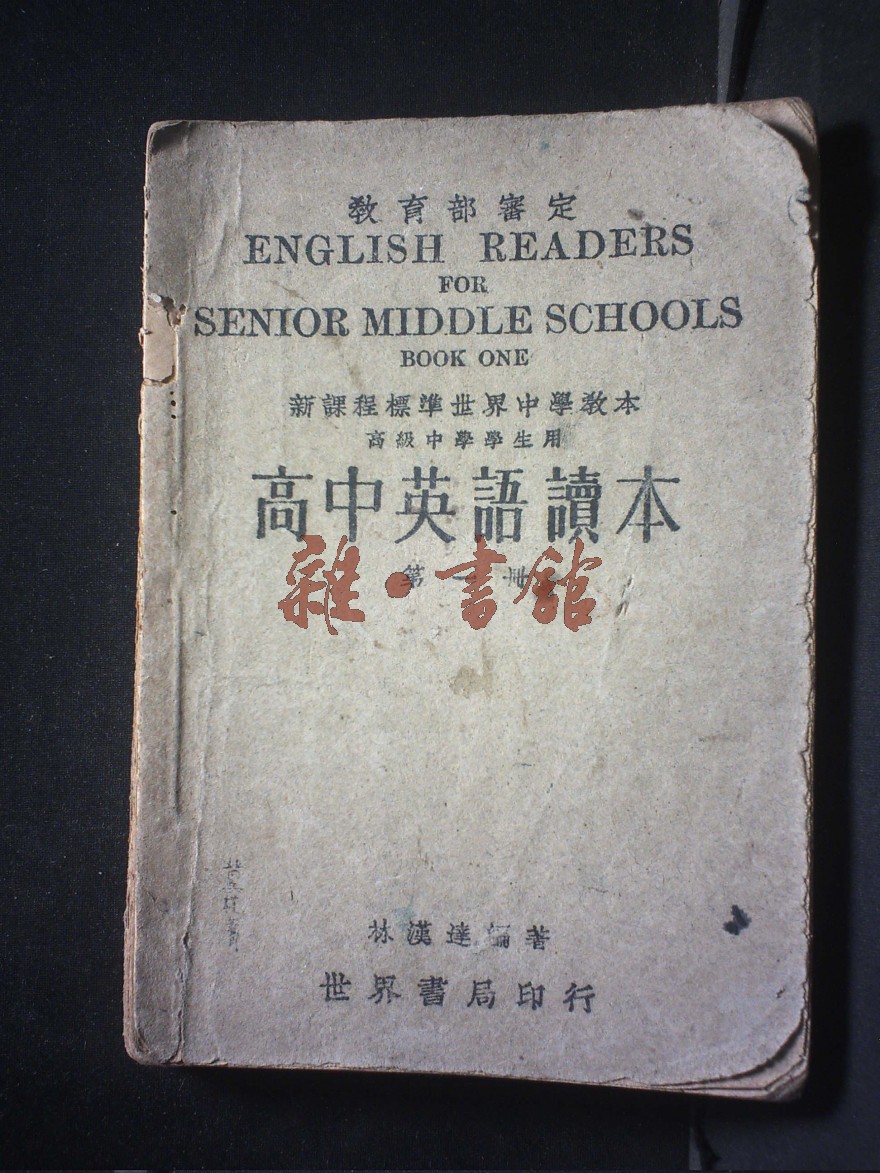 教育部審定
ENGLISH READERS
FOR
SENIOR MIDDLE SCHOOLS
BOOK ONE
新課程標準世界中學教本
高級中學學生用
高中英語讀本
第一冊
雜·書館
林漢達編著
世界書局印行